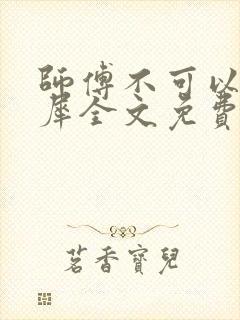 師傅不可以
犀全文免費
茗香寶兒